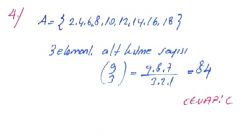 4/ A = {2,4,6,8,10,12,14,16,18}
3 elemanlı alt küme sayısı
(9 3) = 9.8.7 / 3.2.1 = 84
CEVAP: C